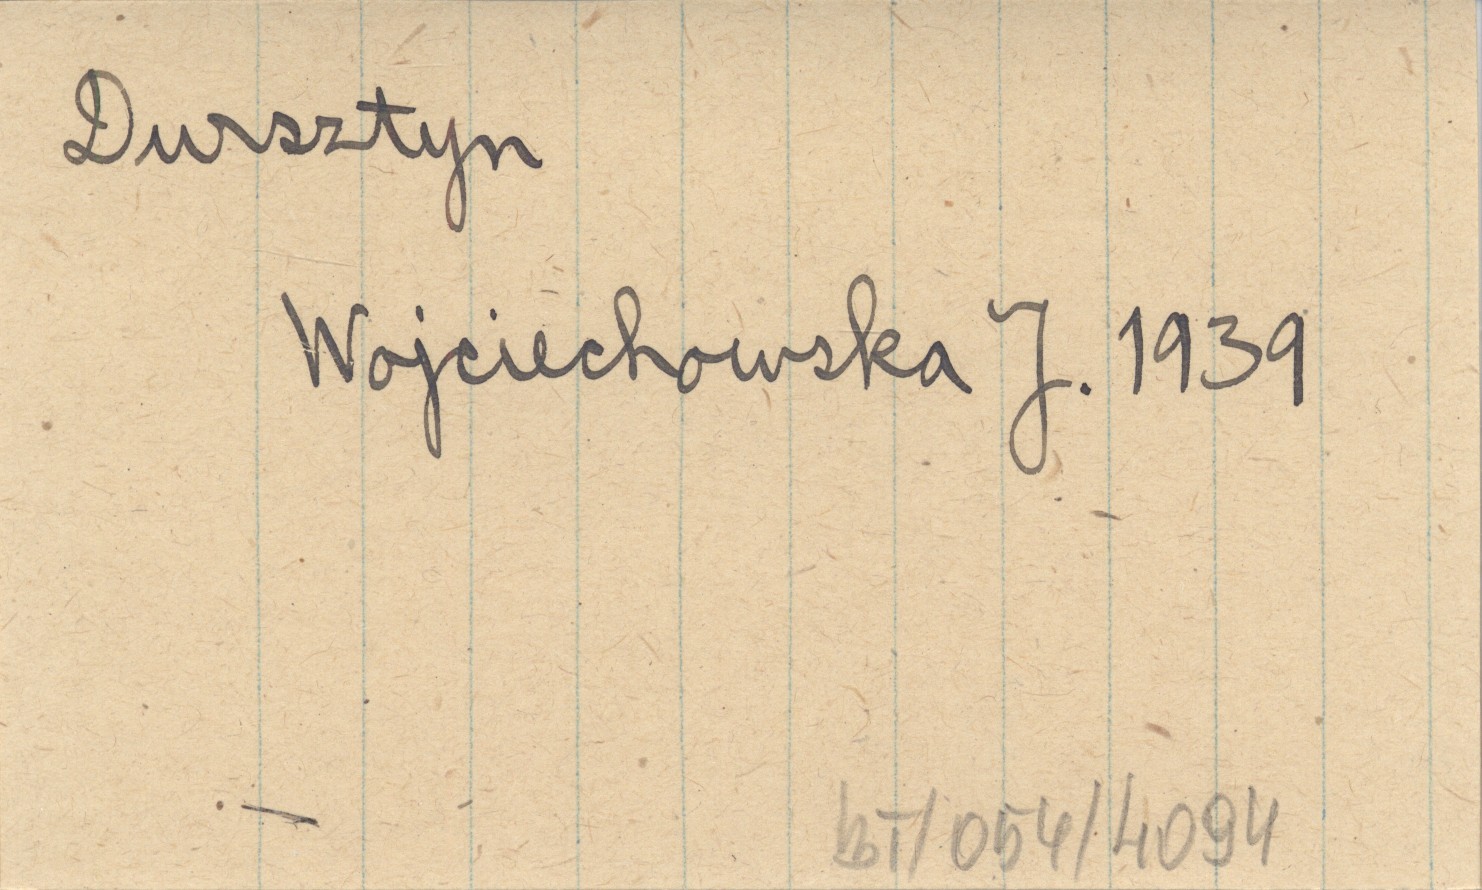 Dursztyn
Wojciechowska J. 1939
bT/054/4094